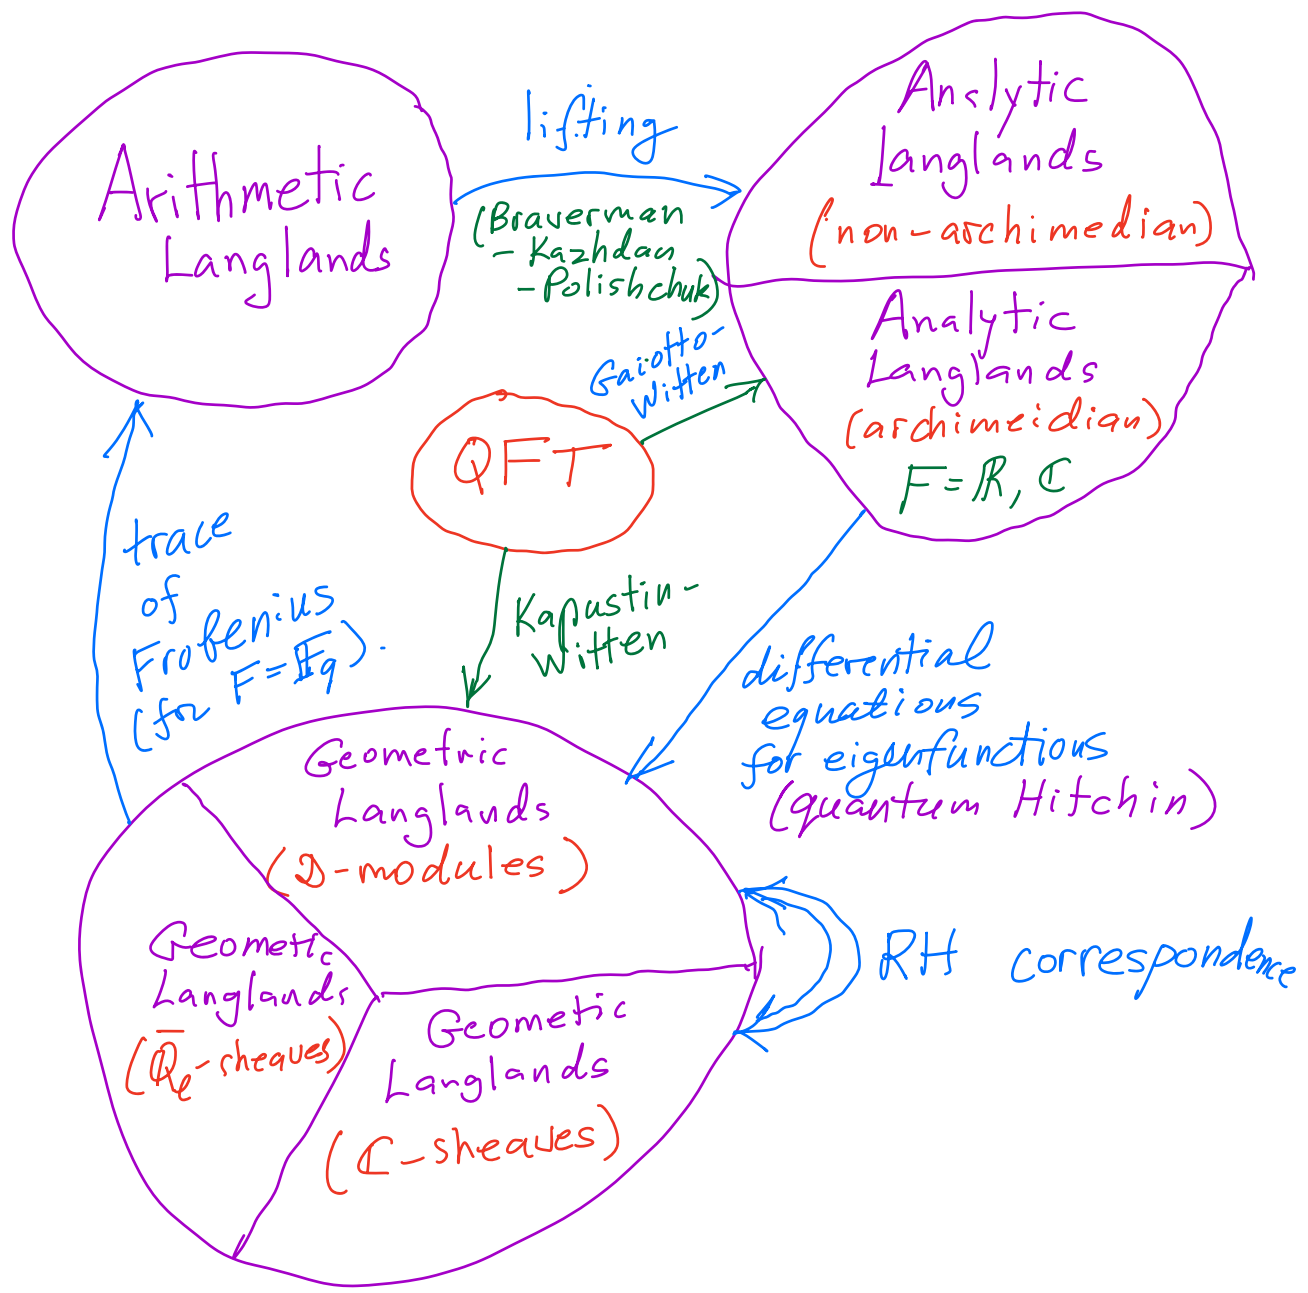 Arithmetic
Langlands
lifting
(Braverman
- Kazhdan
- Polishchuk)
Anslytic
Langlands
(non-archimedian)
Analytic
Langlands
(archimeidian)
F=ℝ, ℂ
Gaiotto-
Witten
QFT
Kapustin-
Witten
trace
of
Frobenius
(for F=𝔽q).
differential
equations
for eigenfunctions
(quantum Hitchin)
Geometric
Langlands
(D-modules)
Geometic
Langlands
(Q̅ℓ-sheaves)
Geometic
Langlands
(ℂ-sheaves)
RH correspondence